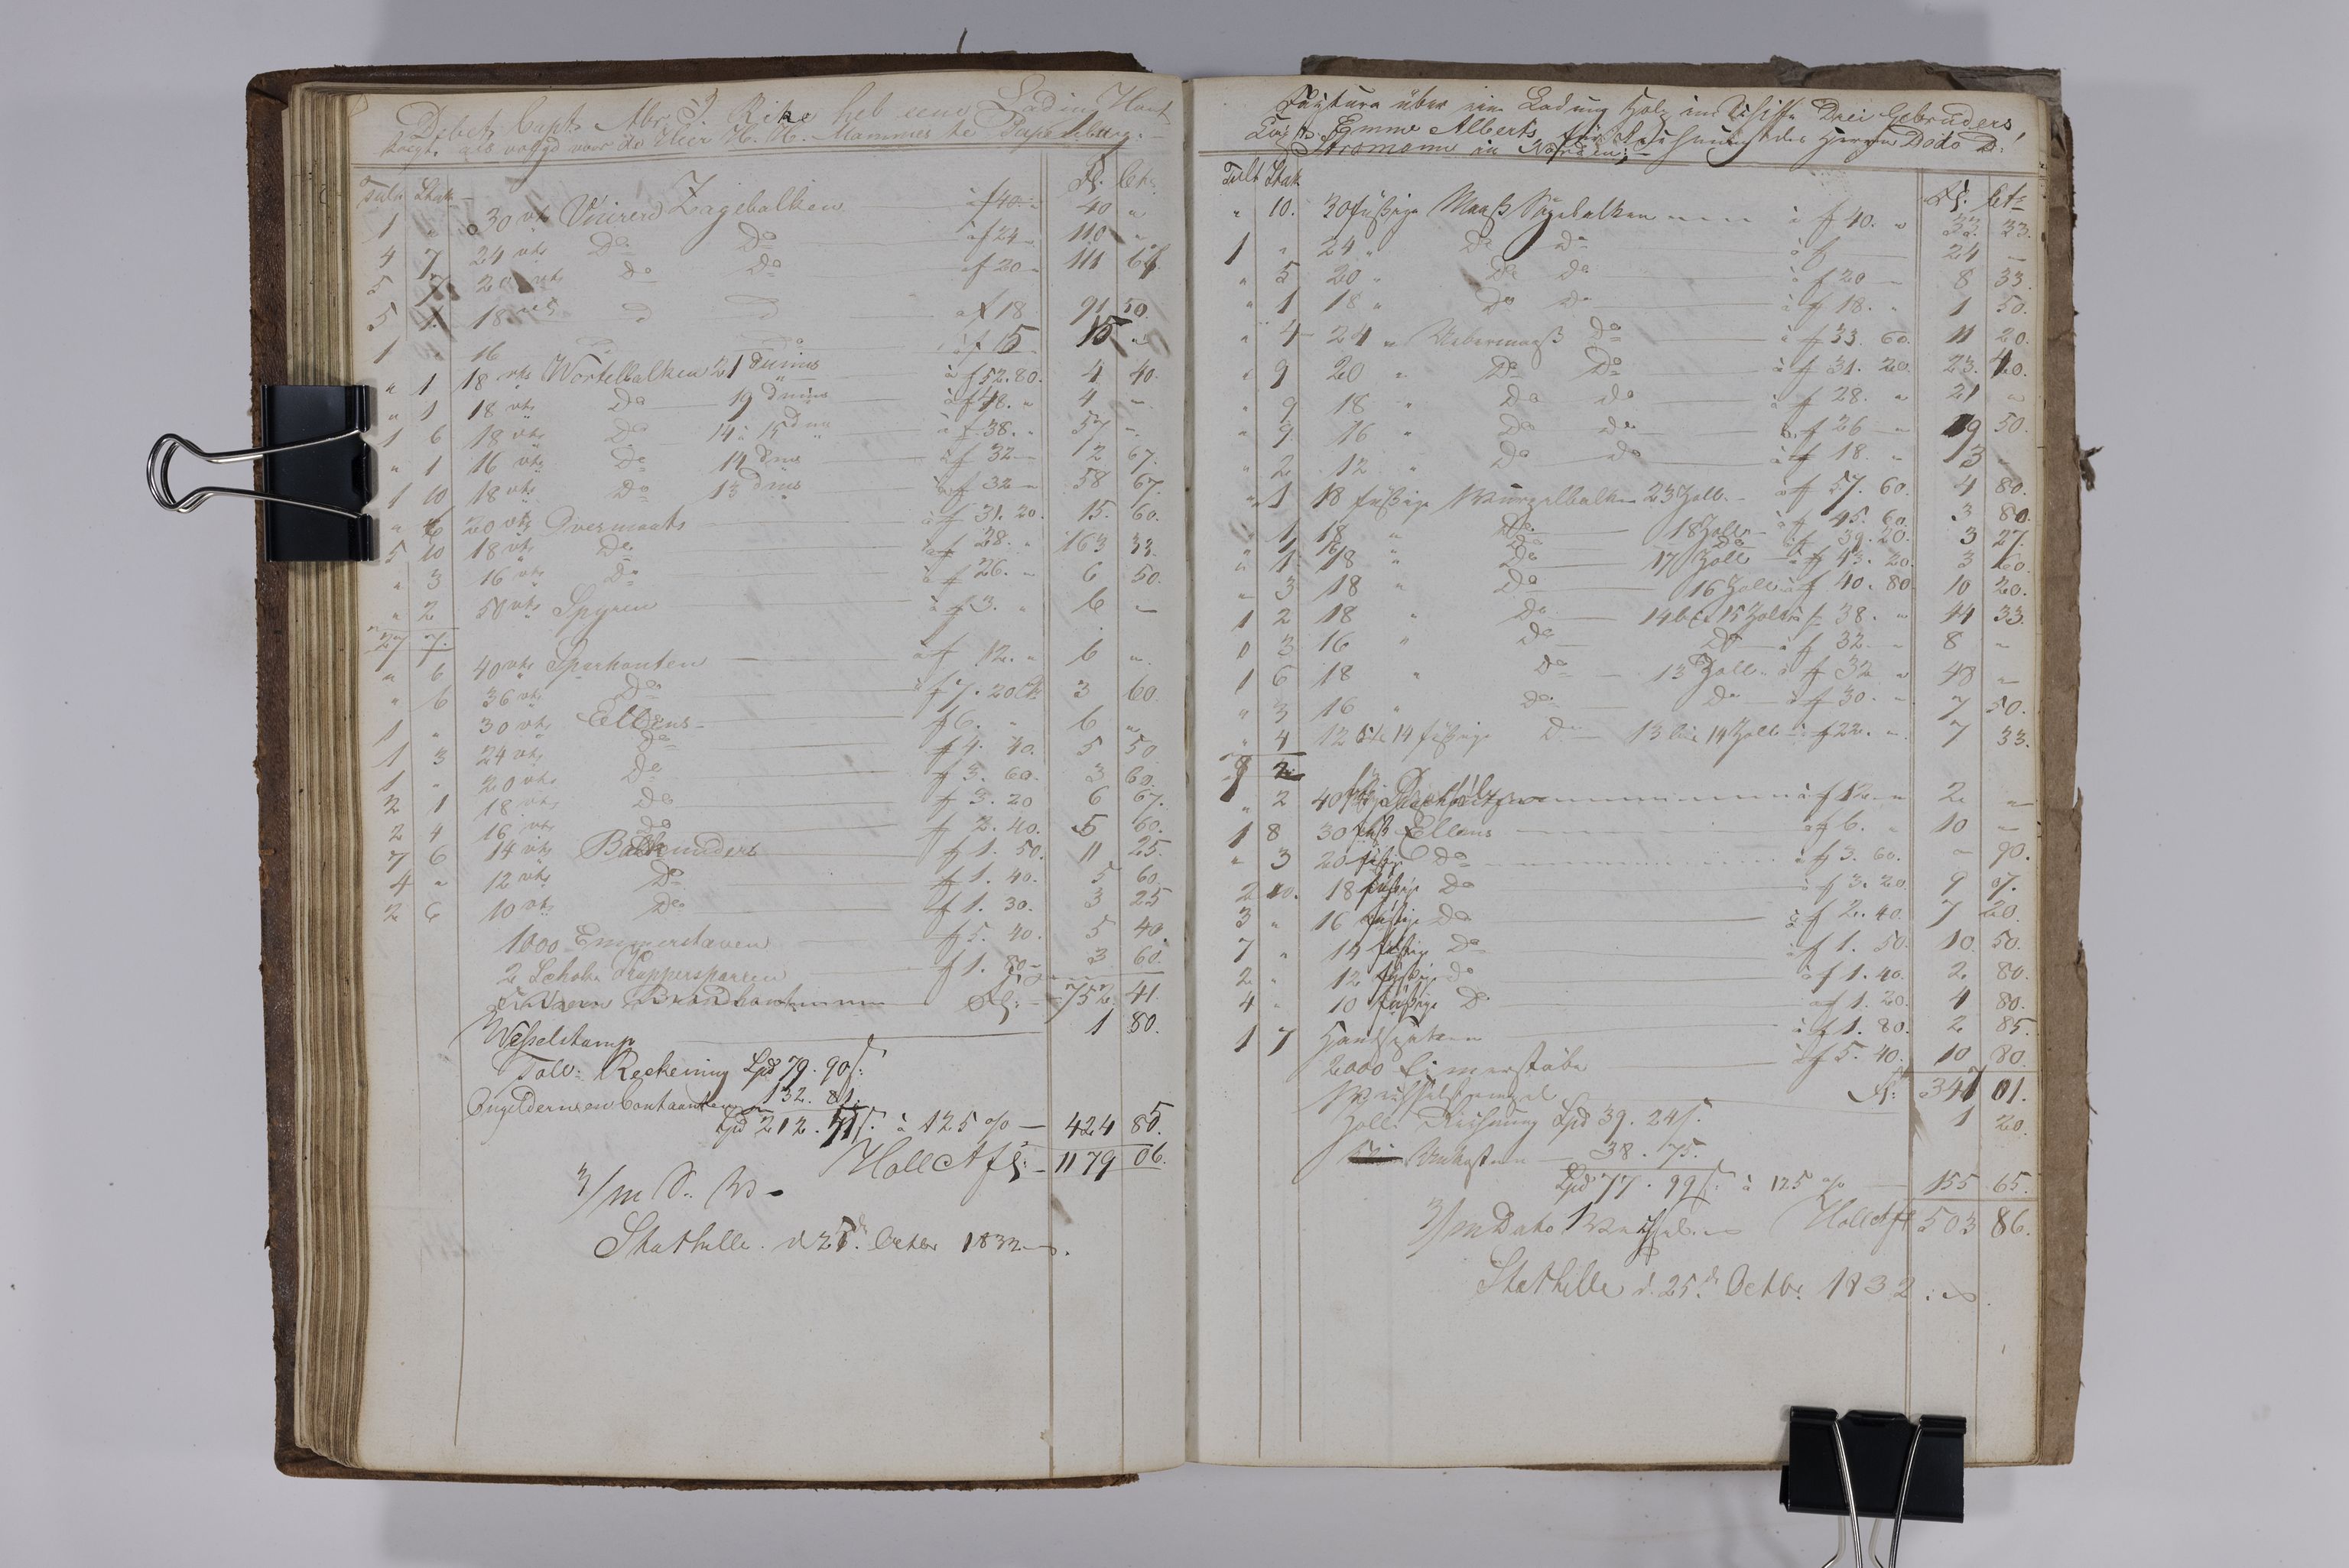 Debet Capt. Abr. J. Rike heb een Lading Hout
als volgd voor de Heer H. H. Mammes te Papenburg.
Tult. Stuk. Fl. Cts.
1 " 30 vts Vuuren Zagebalken à f 40. " 40 "
4 7 24 vts Do Do à f 24 " 110 "
5 7 20 vts Do Do à f 20 " 111 67.
5 1 18 vts à f 18 91 50.
1 " 16 Do à f 15 15 "
" 1 18 vts Wortelbalken 21 duims à f 52. 80. 4 40.
" 1 18 vts Do 19 duims à f 48. " 4 "
1 6 18 vts Do 14 à 15 dms à f 38. " 57 "
" 1 16 vts Do 14 dms à f 32 " 2 67.
1 10 18 vts Do 13 dms à f 32 " 58 67.
" 6 20 vts Overmaats à f 31. 20. 15. 60.
5 10 18 vts Do à f 28. " 163 33.
" 3 16 vts Do à f 26. " 6 50.
" 2 50 vts Spyren à f 3. " 6 "
27 7.
" 6 40 vts Sparhouten à f 12. " 6 "
" 6 36 vts Do à f 7. 20 3 60.
1 " 30 vts Ellens f 6. " 6 "
1 3 24 vts Do f 4. 40. 5 50
1 " 20 vts Do f 3. 60. 3 60.
2 1 18 vts Do f 3. 20 6 67.
2 4 16 vts Do f 2. 40. 5 60.
7 6 14 vts f 1. 50. 11 25.
4 " 12 vts Do f 1. 40. 5 60.
2 6 10 vts Do f 1. 30. 3 25
1000 Emmerstaven f 5. 40. 5 40.
2 f 1. 80 3 60.
Brandhout Fl: 752. 41.
Wesselstamp 1 80.
Toll: Rechening Spd 79. 90 ſ:
Ongelder en Contanten 132. 81.
Spd 212. 71 ſ: à 125 % 424 85.
3/m D. W. Holl Ct fl: 1179 06.
Stathelle d 25. Octbr 1832.
Factura über eine Ladung Holz im Schiffe Drei Gebrüder
Capt. Emme Alberts für Rechnung des Herrn Dodo D.
Stromann in Norden;
Tult Stuk Fl. Cts
" 10. 30 füßige Maaß Sägebalken à f 40. " 33. 33.
1 " 24 " Do Do à f 24 "
" 5 20 " Do Do à f 20 " 8 33.
" 1 18 " Do Do à f 18. " 1 50.
" 4 24 " Uebermaaß Do à f 33. 60. 11 20.
" 9 20 " Do Do à f 31. 20. 23. 40.
" 9 18 " Do Do à f 28. " 21 "
" 9 16 " Do Do à f 26 " 19 50.
" 2 12 " Do Do à f 18. " 3 "
" 1 18 füßige Wurzelbalken 23 Zoll à f 57. 60. 4 80.
" 1 18 " Do 18 Zoll à f 45. 60. 3 80.
" 1 16 " Do Do à f 39. 20. 3 27.
" 1 18 " Do 17 Zoll à f 43. 20. 3 60.
" 3 18 " Do 16 Zoll à f 40. 80 10 20.
1 2 18 " Do 14 bis 15 Zoll à f 38. " 44 33.
" 3 16 " Do Do à f 32. " 8 "
1 6 18 " Do 13 Zoll à f 32 " 48 "
" 3 16 " Do Do à f 30. " 7 50.
" 4 12 bis 14 füßige Do 13 bis 14 Zoll à f 22. " 7 33.
9 2
" 2 40 à f 12 " 2 "
1 8 30 füß Ellens à f 6. " 10 "
" 3 20 füßig Do à f 3. 60. " 90.
2 10. 18 füßige Do à f 3. 20. 9 07.
3 " 16 füßige Do à f 2. 40. 7 20.
7 " 14 füßig Do à f 1. 50. 10. 50.
2 " 12 füßige Do à f 1. 40. 2 80.
4 " 10 füßige Do à f 1. 20. 4 80.
1 7 Handspaken à f 1. 80. 2 85.
2000 Eimerstäbe à f 5. 40. 10 80.
Fl: 347 01.
Wechselstempel 1 20.
Zoll: Rechnung Spd 39. 24 ſ.
Unkosten 38. 75.
Spd 77. 99 ſ: à 125 % 155 65.
3/m Dato Wechsel. Holl Ct fl 503 86.
Stathelle d. 25. Octbr. 1832.